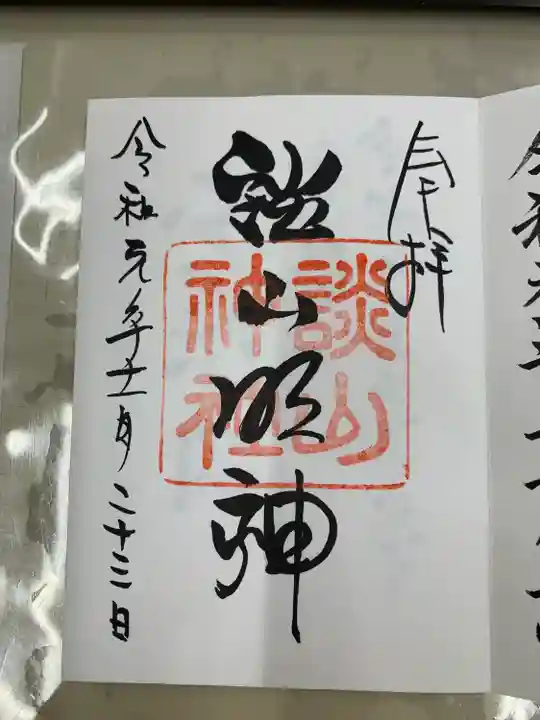 奉拝
談山明神
談山
神社
令和元年十一月二十三日